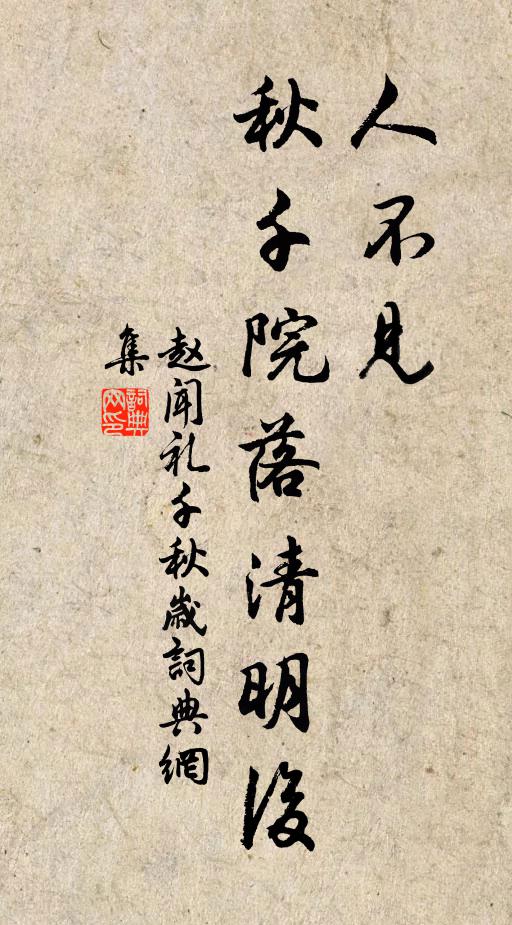 人不见
秋千院落清明後
赵闻礼千秋岁詞典網
集
詞典網印